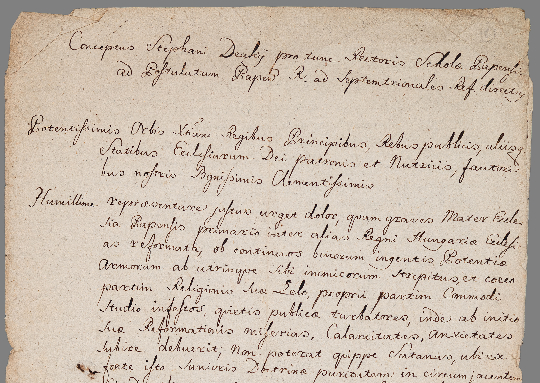 Conceptus Stephani Deaky pro tunc Rectoris Scholæ Papensis
ad Postulatum Papens. R. ad Septemtrionales Ref. direct
Potentissimis Orbis Xtiani Regibus Principibus, Rebus publicis, aliisq
Statibus Ecclesiarum Dei patronis et Nutritiis, fautori-
bus nostris Dignissimis Clementissimis
Humillime repræsentare justus urget dolor, quam graves Mater Eccle-
sia Papensis primaria inter alias Regni Hungariæ Ecclesi-
as reformata, ob continuos duorum ingentis Potentiæ
Armorum ab utrinque sibi inimicorum Strepitus, et coeco
partim Religionis suæ Zelo, proprii partim Commodi
Studio infestos, quietis publicæ turbatores, inde ab initio
Suæ Reformationis miserias, Calamitates, Anxietates
subire debuerit; non poterat quippe Satanas, ubi ex
forte isto Sinceris Doctrinæ puritatem in circumjacentem